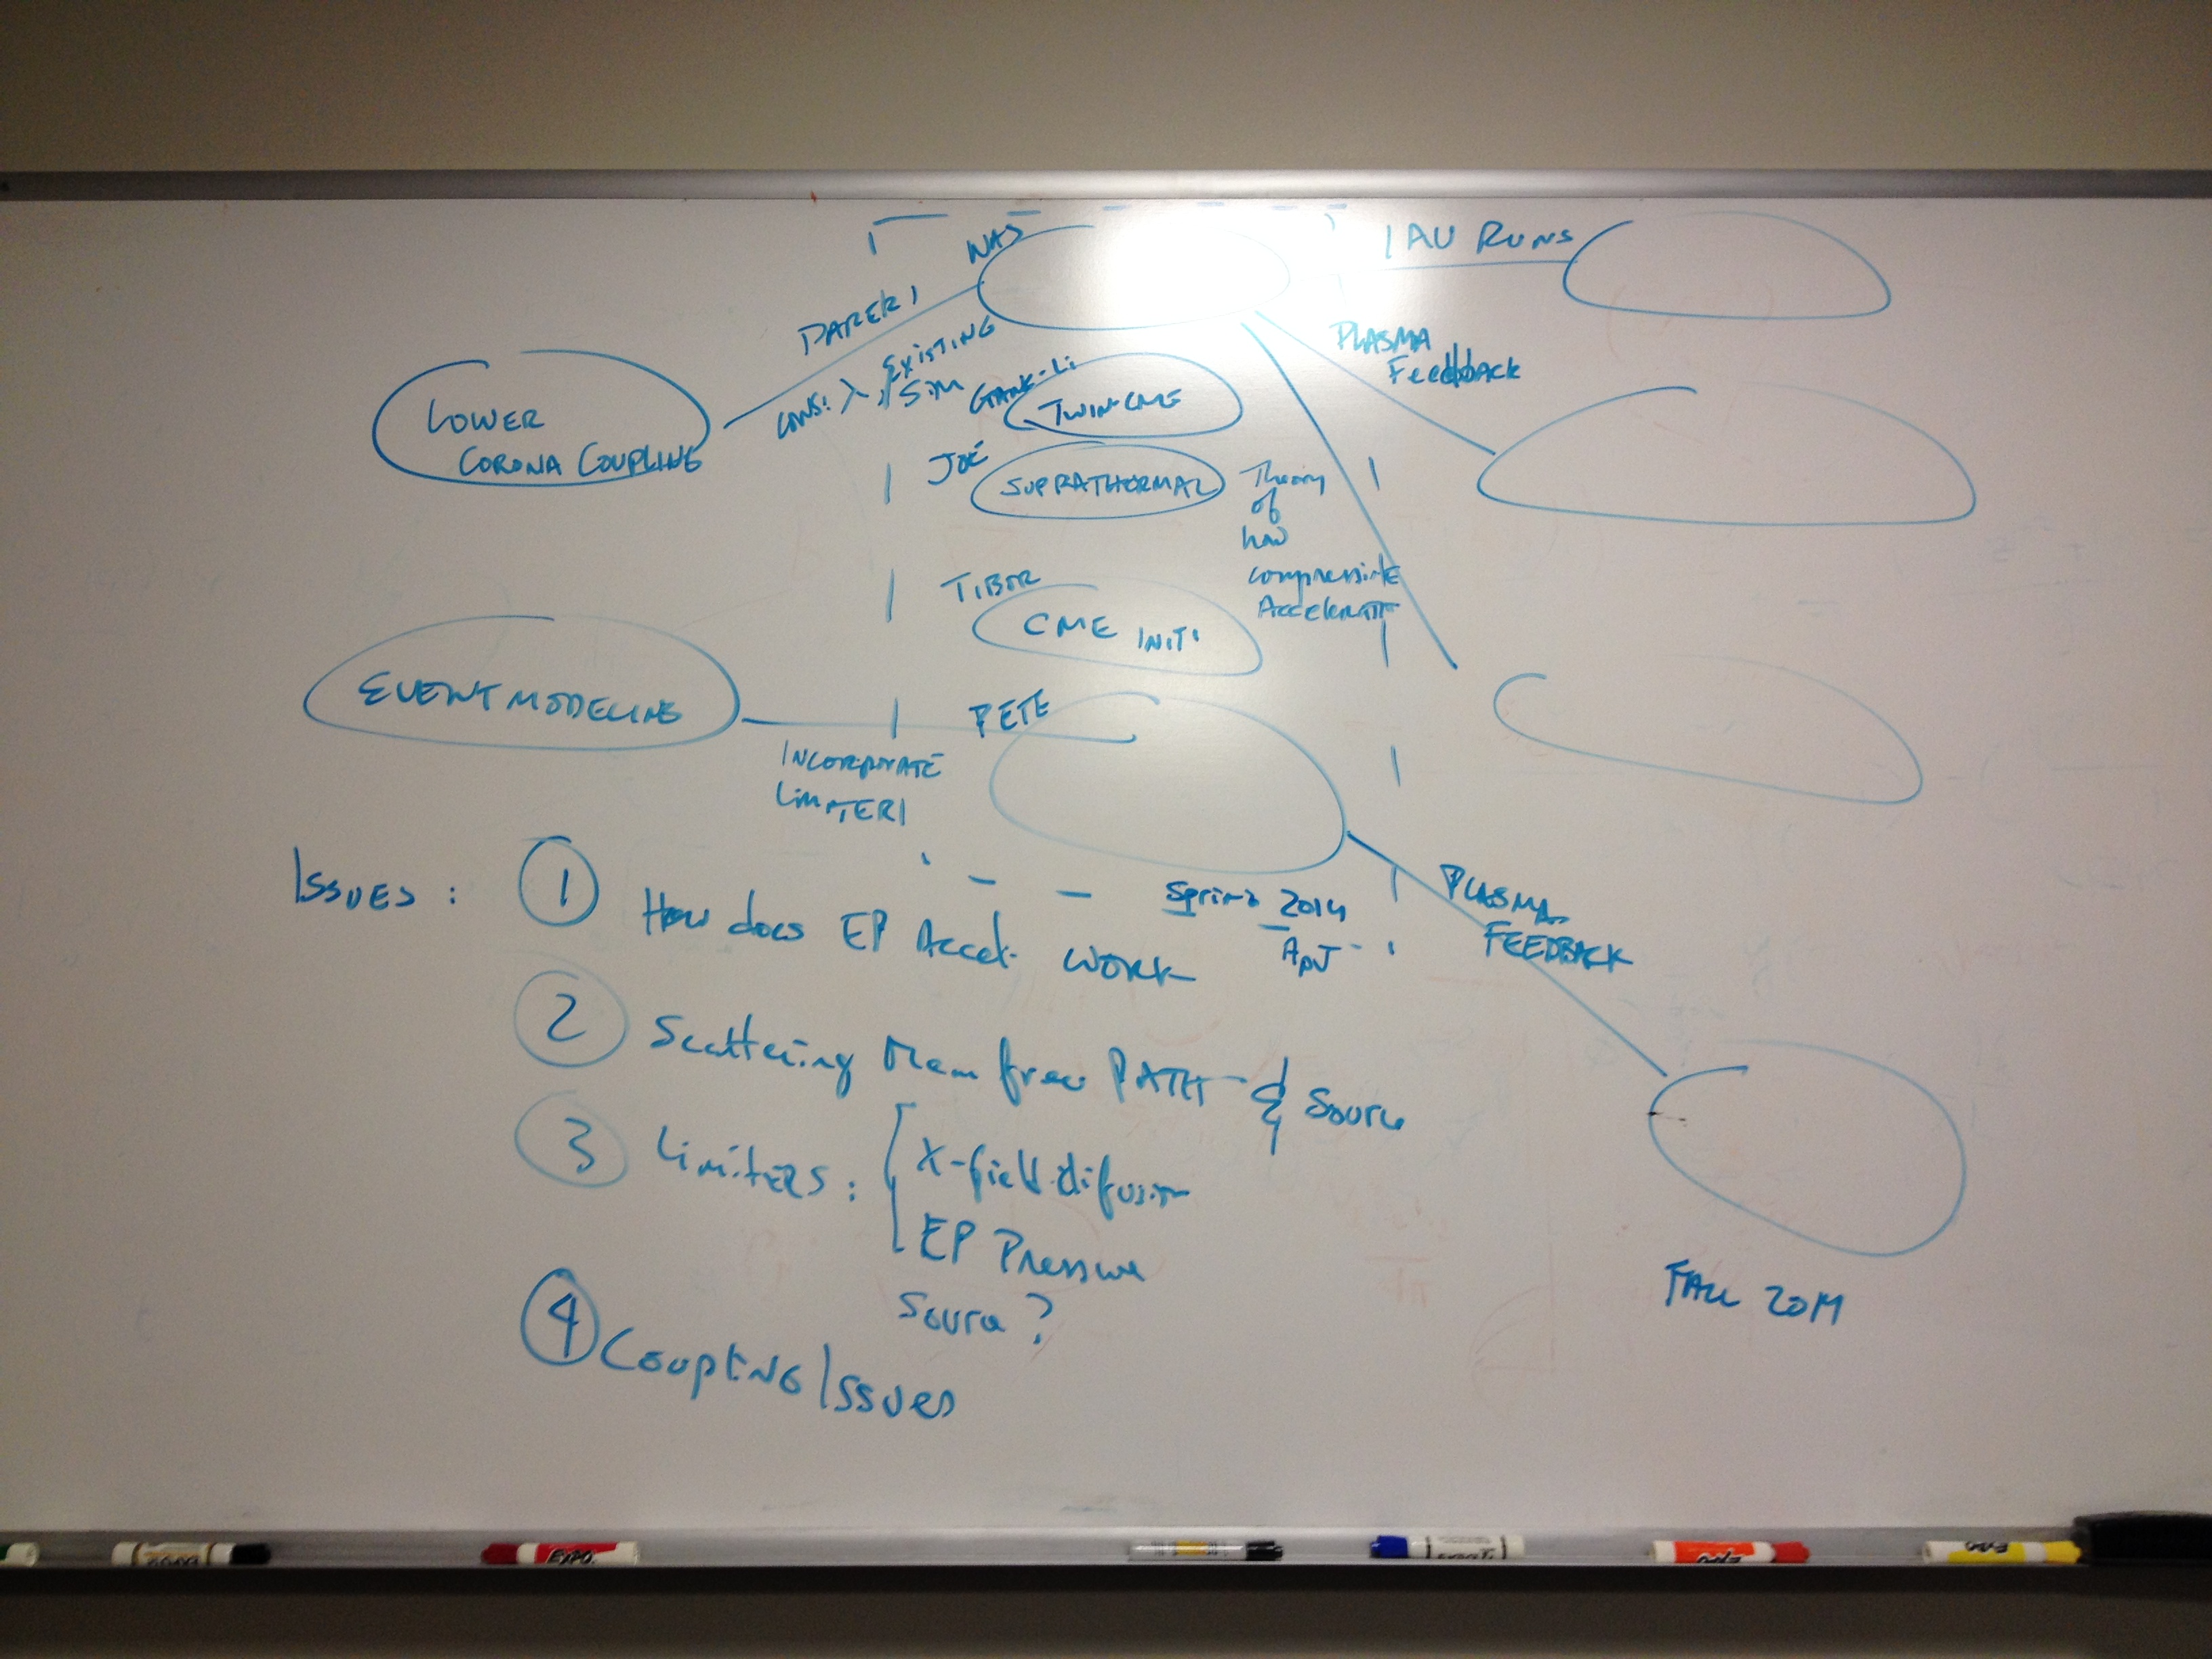 NAS
1 AU RUNS
PAPER 1
EXISTING
CONS: λ, SIM
PLASMA
Feedback
GANG-Li
TWIN CME
LOWER
CORONA COUPLING
JOE
SUPRATHERMAL
Theory
of
how
compressive
Accelerat
TIBOR
CME INIT'
EVENT MODELING
PETE
INCORPORATE
LIMITER
ISSUES :
1 How does EP Accel. WORK
Spring 2014
ApJ
PLASMA
FEEDBACK
2 Scattering Mean free PATH & Source
3 LimitERS :
X-field difusion
EP Pressure
Source ?
4 Coupling Issues
FALL 2014
EXPO
EXPO